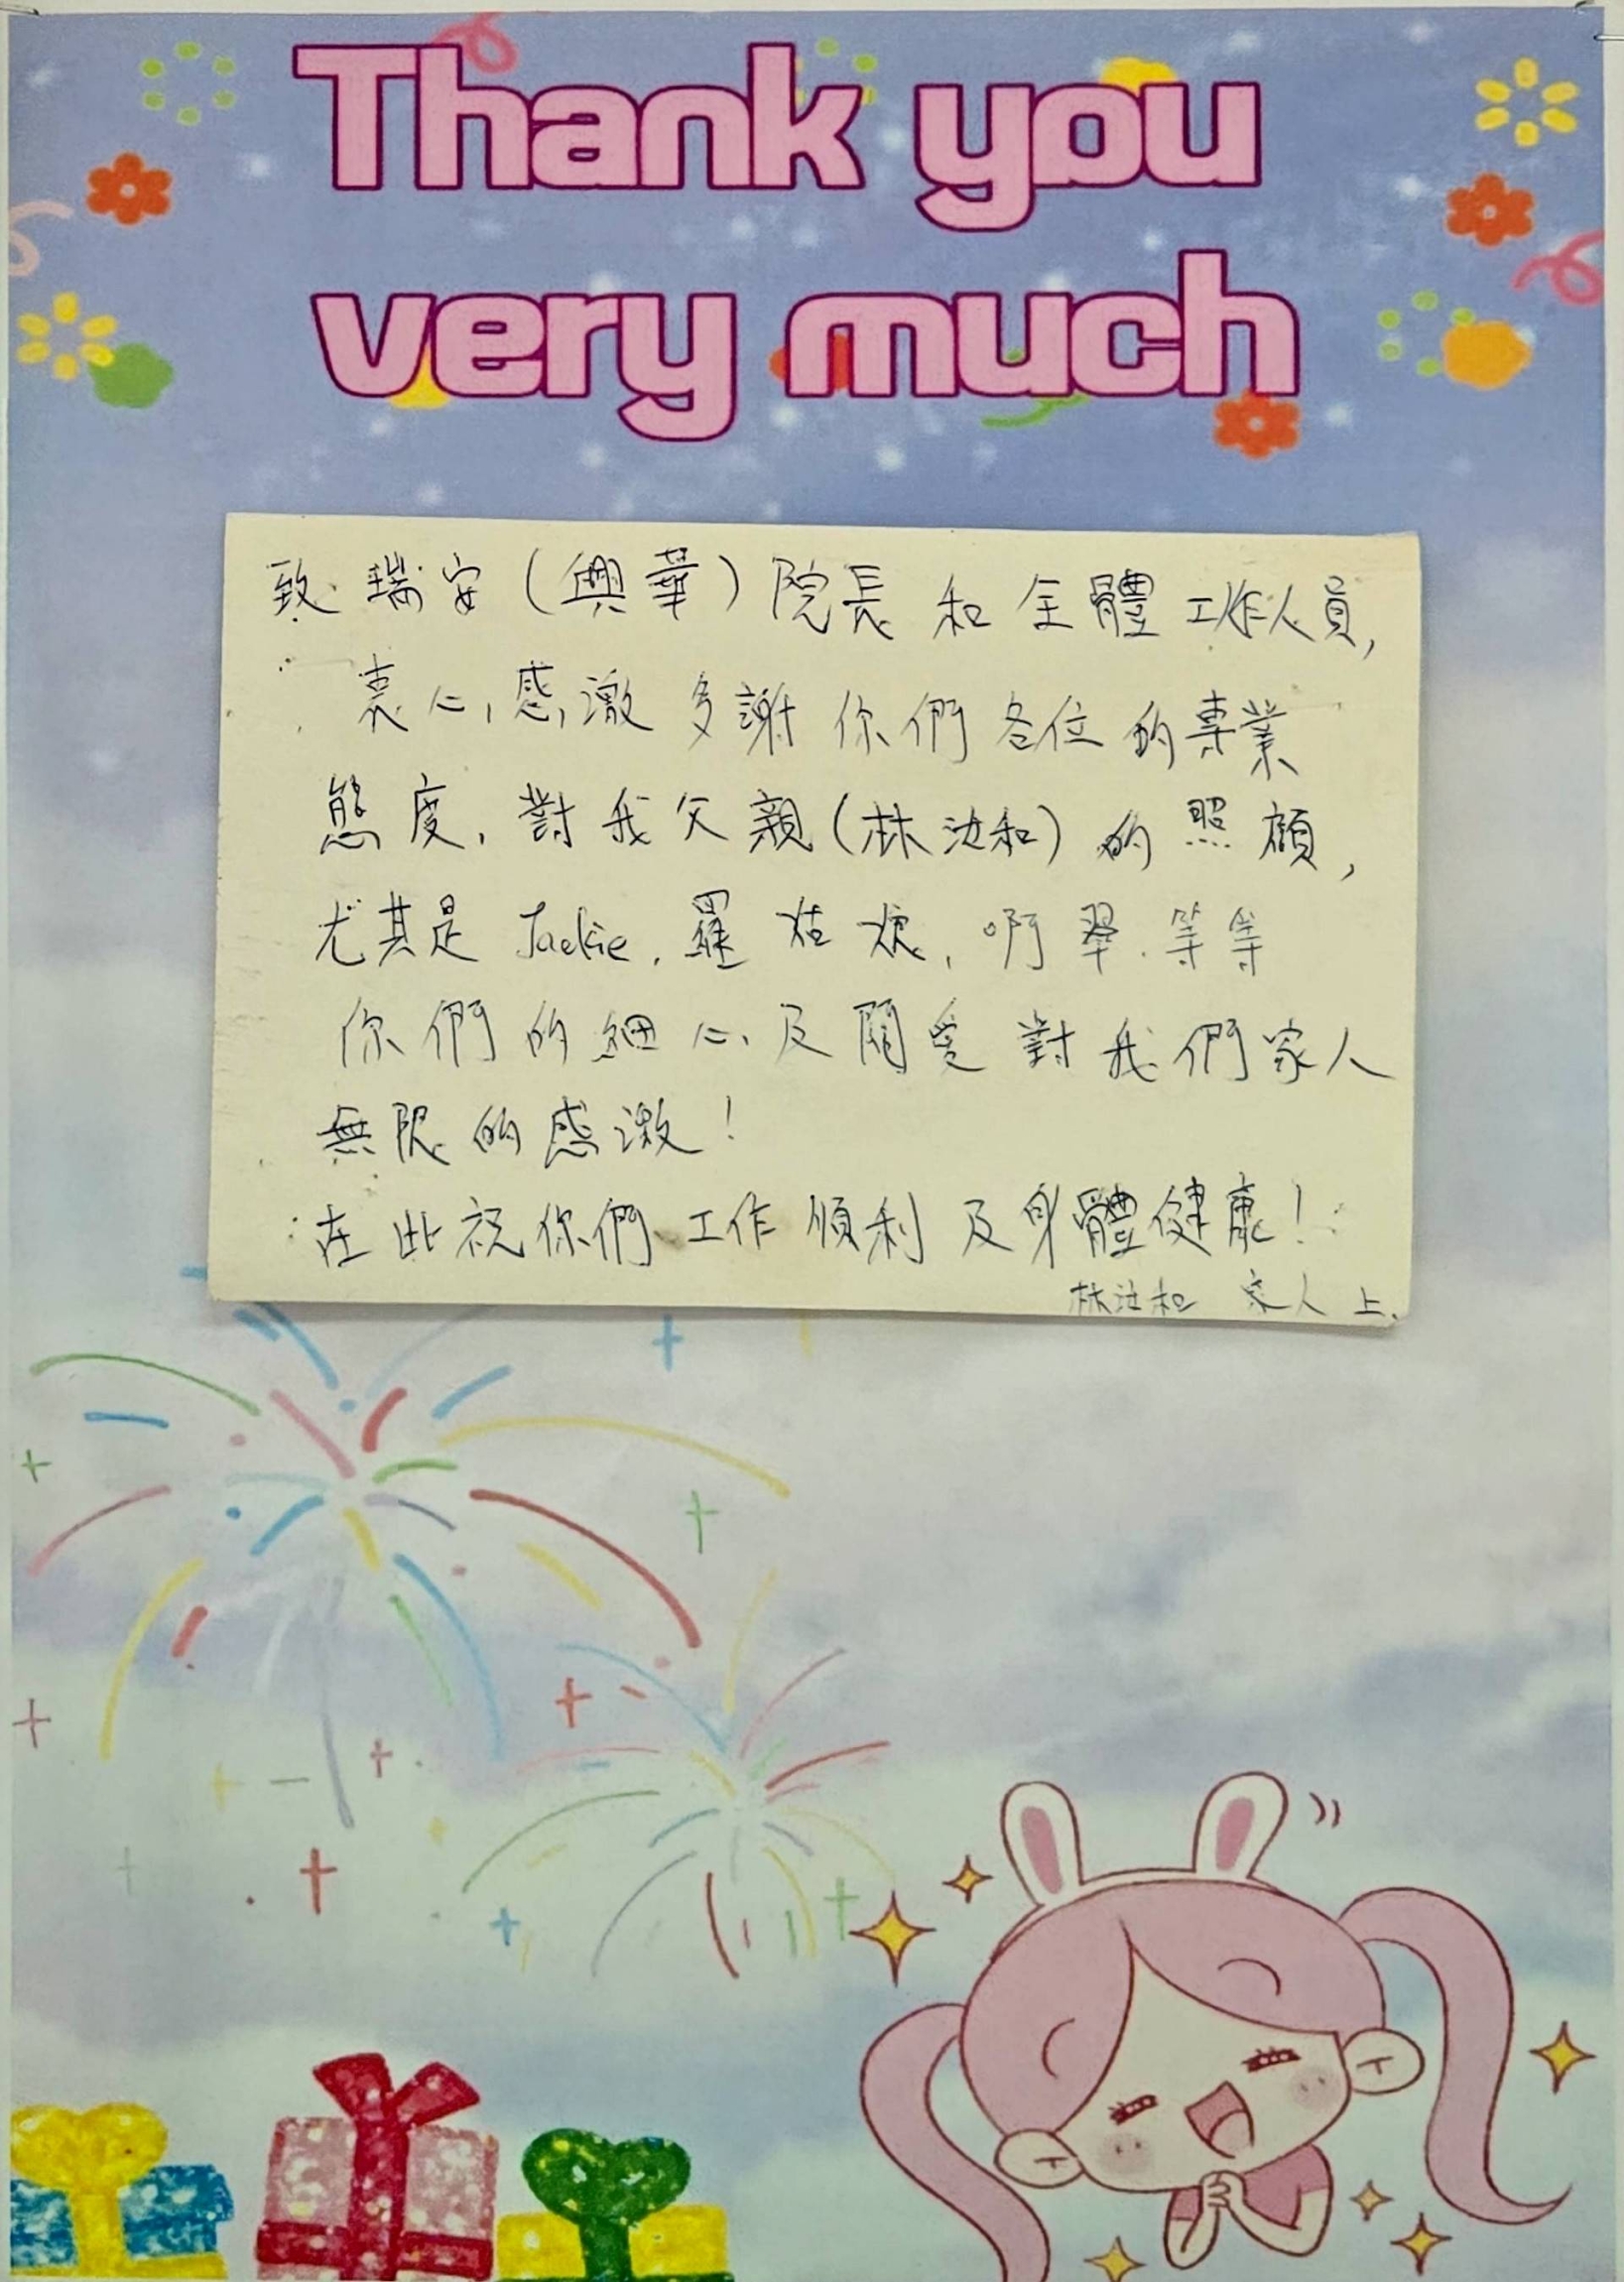 Thank you
very much
致 瑞安（興華）院長 和 全體 工作人員，
衷心感激 多謝 你們 各位 的專業
態度，對我父親（林 和）的照顧，
尤其是 Jackie，羅姑娘，啊翠 等等
你們的細心及關愛對我們家人
無限的感激！
在此祝你們 工作順利 及身體健康！
林 和 家人 上.